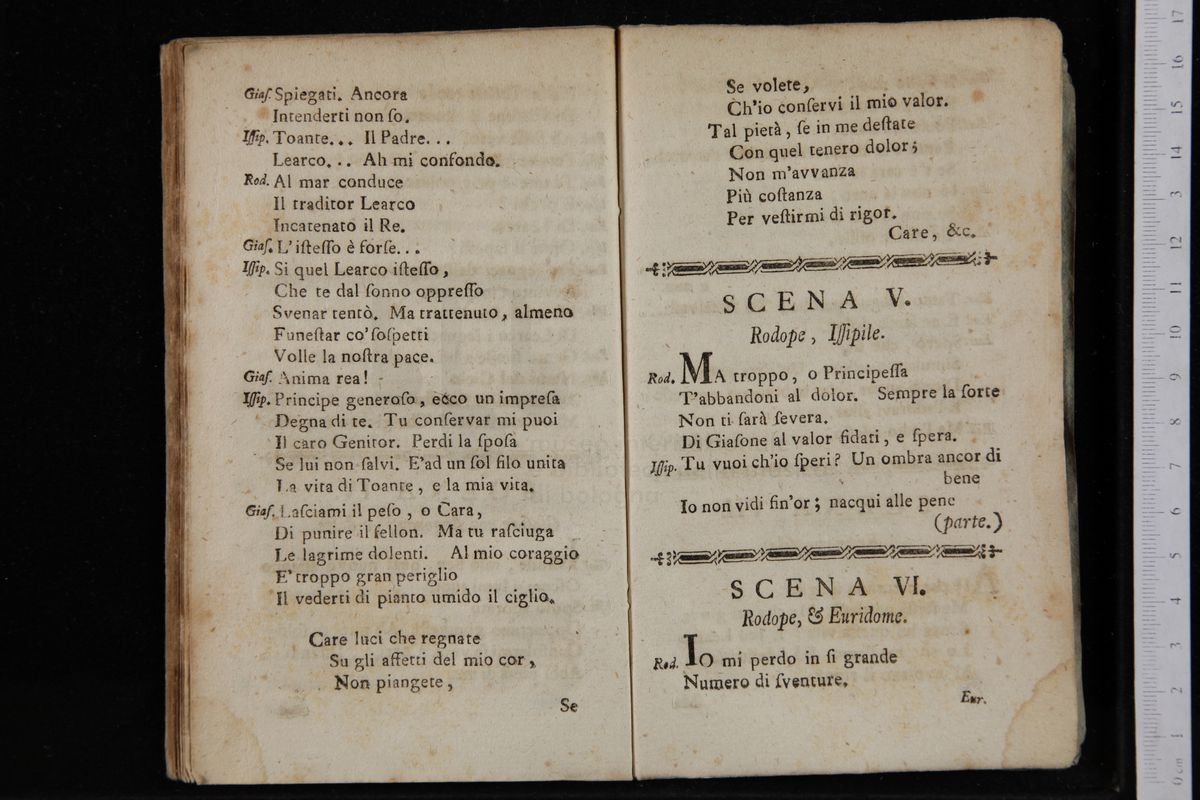 Giaſ. Spiegati. Ancora
Intenderti non ſo.
Iſſip. Toante... Il Padre...
Learco... Ah mi confondo.
Rod. Al mar conduce
Il traditor Learco
Incatenato il Re.
Giaſ. L' iſteſſo è forſe...
Iſſip. Si quel Learco iſteſſo,
Che te dal ſonno oppreſſo
Svenar tentò. Ma trattenuto, almeno
Funeſtar co' ſoſpetti
Volle la noſtra pace.
Giaſ. Anima rea!
Iſſip. Principe generoſo, ecco un impreſa
Degna di te. Tu conſervar mi puoi
Il caro Genitor. Perdi la ſpoſa
Se lui non ſalvi. E' ad un ſol filo unita
La vita di Toante, e la mia vita.
Giaſ. Laſciami il peſo, o Cara,
Di punire il fellon. Ma tu raſciuga
Le lagrime dolenti. Al mio coraggio
E' troppo gran periglio
Il vederti di pianto umido il ciglio.
Care luci che regnate
Su gli affetti del mio cor,
Non piangete,
Se
Se volete,
Ch'io conſervi il mio valor.
Tal pietà, ſe in me deſtate
Con quel tenero dolor;
Non m'avvanza
Più coſtanza
Per veſtirmi di rigor.
Care, &c.
SCENA V.
Rodope, Iſſipile.
Rod. MA troppo, o Principeſſa
T'abbandoni al dolor. Sempre la ſorte
Non ti ſarà ſevera.
Di Giaſone al valor fidati, e ſpera.
Iſſip. Tu vuoi ch'io ſperi? Un ombra ancor di
bene
Io non vidi fin'or; nacqui alle pene
(parte.)
SCENA VI.
Rodope, & Euridome.
Rod. IO mi perdo in ſi grande
Numero di ſventure.
Eur.
0 cm 1 2 3 4 5 6 7 8 9 10 11 12 13 14 15 16 17